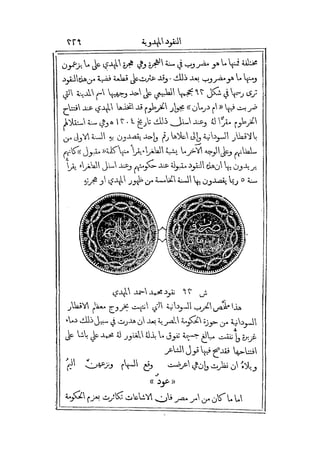 النقود المهدوية ٢٣٩
مختلفة فمنها ما هو مضروب في سنة الهجرة وهي هجرة المهدي على ما يزعمون
ومنها ما هو مضروب بعد ذلك. وقد عثرت على قطعة فضية من هذه النقود
ترى رسمها في شكل ٦٢ بحجمها الطبيعي على احد وجهيها اسم المدينة التي
ضربت فيها « ام درمان » بجوار الخرطوم قد اتخذها المهدي عند افتتاح
الخرطوم مقرًّا له وعند اسفل ذلك تاريخ ١٣٠٤ هـ وهي سنة استقلالهم
بالاقطار السودانية والى اعلاها رقم واحد يقصدون به السنة الاولى من
سلطانهم وعلى الوجه الآخر ما يشبه الطغراء يقرأ منها كلمة « مقبول » كأنهم
يريدون بها ان هذه النقود مقبولة عند حكومتهم وعند اسفل الطغراء يقرأ
سنة ٥ ربما يقصدون بها السنة الخامسة من ظهور المهدي او هجرته
ش ٦٢ نقود محمد احمد المهدي
هذا ملخص الحرب السودانية التي انتهت بخروج معظم الاقطار
السودانية من حوزة الحكومة المصرية بعد ان هدرت في سبيل ذلك دماء
غزيرة وأنفقت مبالغ جسيمة تفوق ما بذله المغفور له محمد علي باشا على
افتتاحها فقد صح فيها قول الشاعر
ويلاهُ ان نظرت وان هي اعرضت وقع السهام ونزعهن اليمُ
« عود »
اما ما كان من امر مصر فان الاشاعات تكاثرت بعزم الحكومة